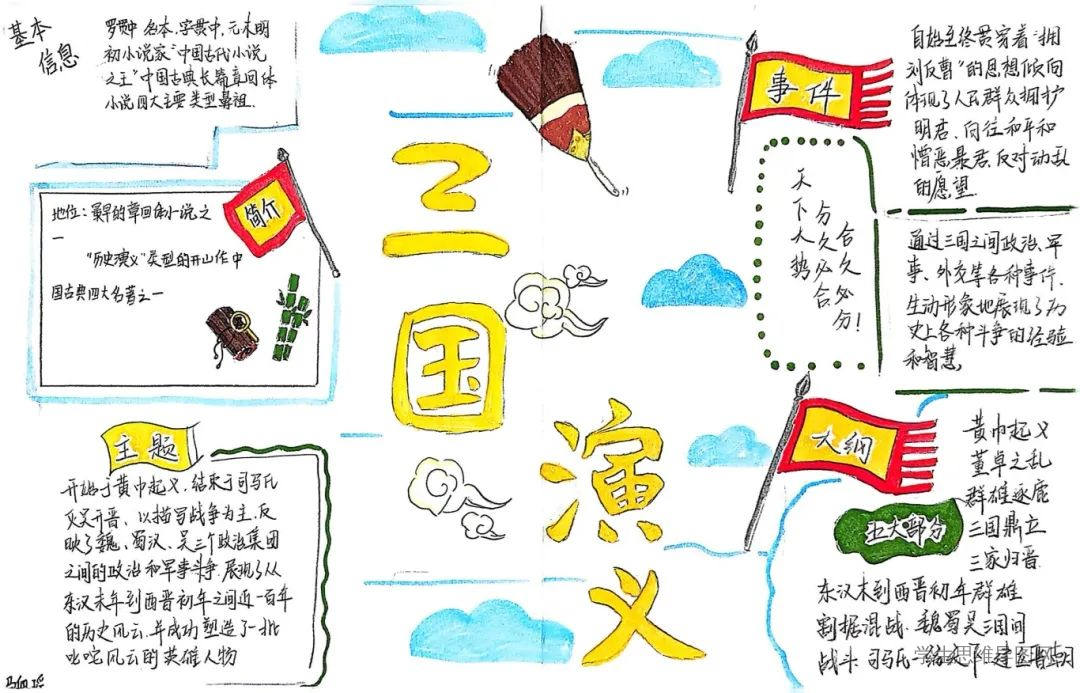 基本
信息
罗贯中 名本，字贯中，元末明
初小说家"中国古代小说
之王"中国古典长篇章回体
小说四大主要类型鼻祖.
简介
地位：最早的章回体小说之
一
"历史演义"类型的开山作 中
国古典四大名著之一
主题
开始于黄巾起义，结束于司马氏
灭吴开晋、以描写战争为主，反
映了魏、蜀汉、吴三个政治集团
之间的政治和军事斗争.展现了从
东汉末年到西晋初年之间近一百年
的历史风云.并成功塑造了一批
叱咤风云的英雄人物
三国
演义
事件
天下大势
分久必合
合久必分！
自始至终贯穿着"拥
刘反曹"的思想倾向
体现了人民群众拥护
明君、向往和平和
憎恶暴君，反对动乱
的愿望.
通过三国之间政治、军
事、外交等各种事件.
生动形象地展现了历
史上各种斗争的经验
和智慧,
大纲
五大部分
黄巾起义
董卓之乱
群雄逐鹿
三国鼎立
三家归晋.
东汉末到西晋初年群雄
割据混战.魏蜀吴三国间
战斗.司马氏一统天下 建立晋朝